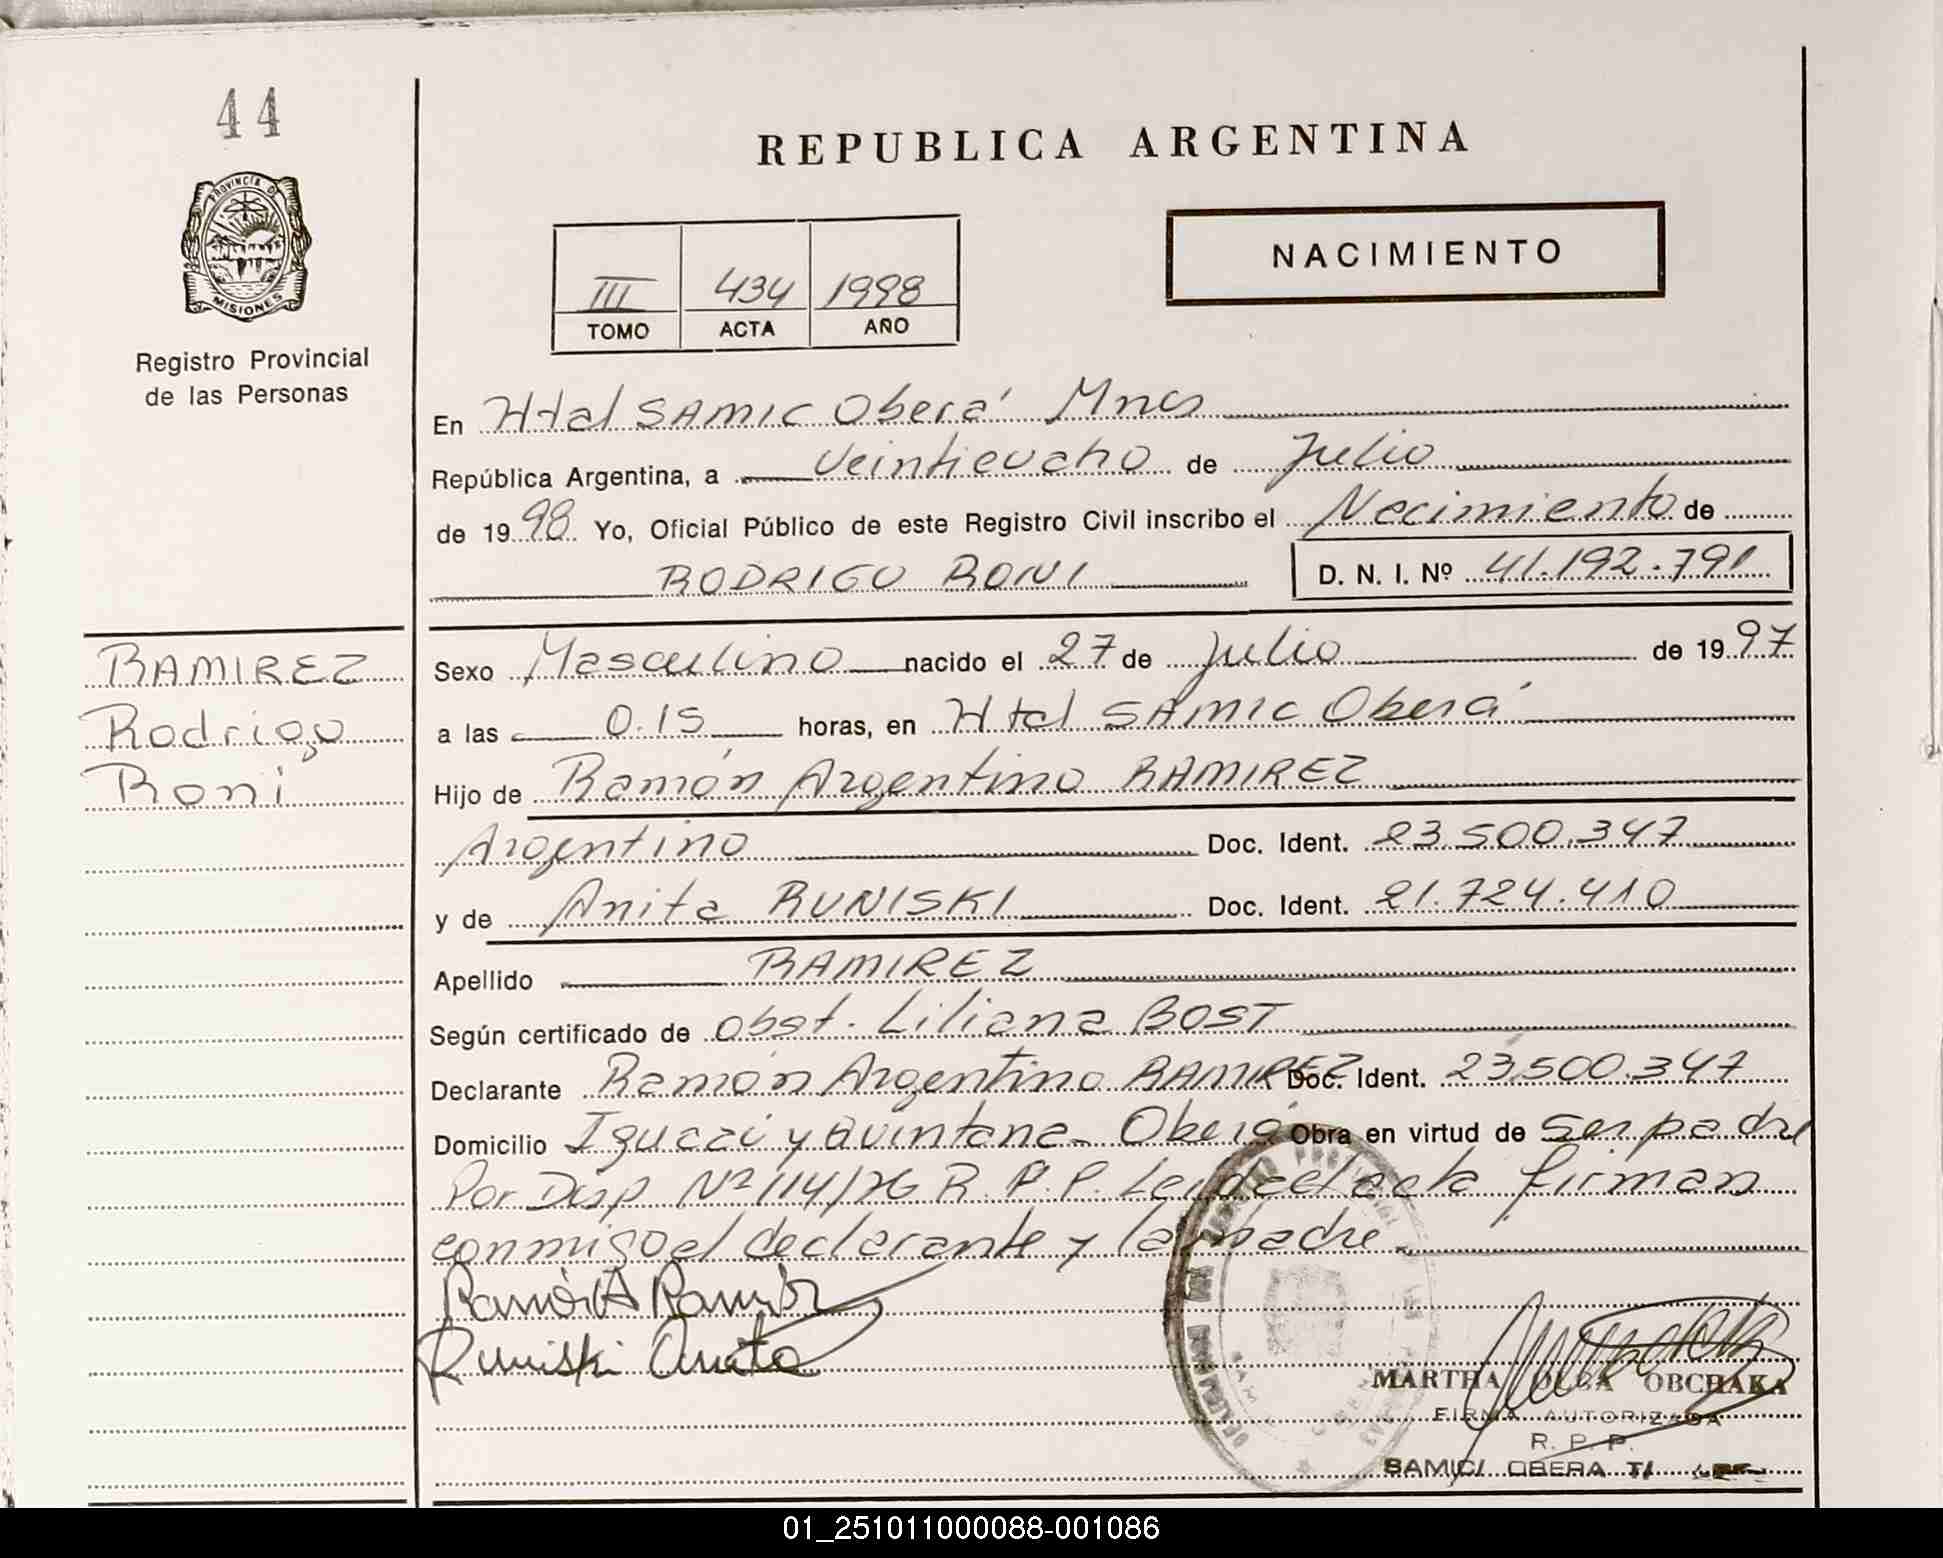 44
PROVINCIA DE
MISIONES
Registro Provincial
de las Personas
REPUBLICA ARGENTINA
NACIMIENTO
III 434 1998
TOMO ACTA AÑO
En Htal SAMIC Oberá Mnes
República Argentina, a Veintieucho de Julio
de 1998 Yo, Oficial Público de este Registro Civil inscribo el Nacimiento de
RODRIGO RONI D. N. I. Nº 41.192.791
RAMIREZ
Rodrigo
Roni
Sexo Masculino nacido el 27 de Julio de 1997
a las 0.15 horas, en Htal SAMIC Oberá
Hijo de Ramón Argentino RAMIREZ
Argentino Doc. Ident. 23.500.347
y de Anita RUNISKI Doc. Ident. 21.724.410
Apellido RAMIREZ
Según certificado de obst. Liliana BOST
Declarante Ramón Argentino RAMIREZ Doc. Ident. 23.500.347
Domicilio Iguazú y Quintana - Oberá Obra en virtud de ser padre
Por Disp Nº 114/76 R.P.P. Leída el acta firman
conmigo el declarante y la madre
Ramón A Ramirez
Runiski Anita
MARTHA OLGA OBCHAKA
FIRMA AUTORIZADA
R. P. P.
SAMIC/ OBERA
01_251011000088-001086